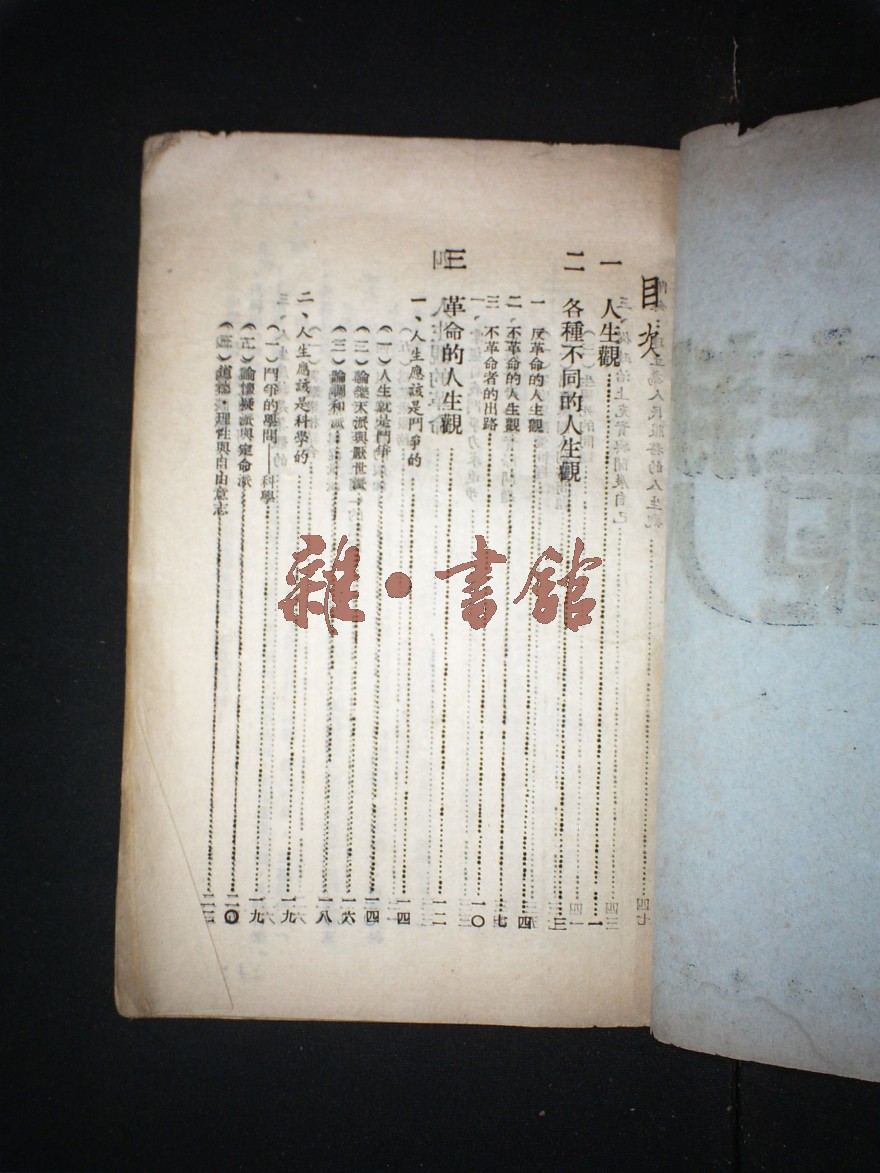 目次
一 人生觀……一
二 各種不同的人生觀……三
一 反革命的人生觀……四
二 不革命的人生觀……七
三 不革命者的出路……一〇
三 革命的人生觀……一二
一、人生應該是鬥爭的……一四
(一)人生就是鬥爭……一四
(二)論樂天派與厭世派……一六
(三)論調和派……一八
二、人生應該是科學的……一九
(一)鬥爭的學問——科學……一九
(二)論懷疑派與定命派……二〇
(三)道德・理性與自由意志……二三
雜・書館